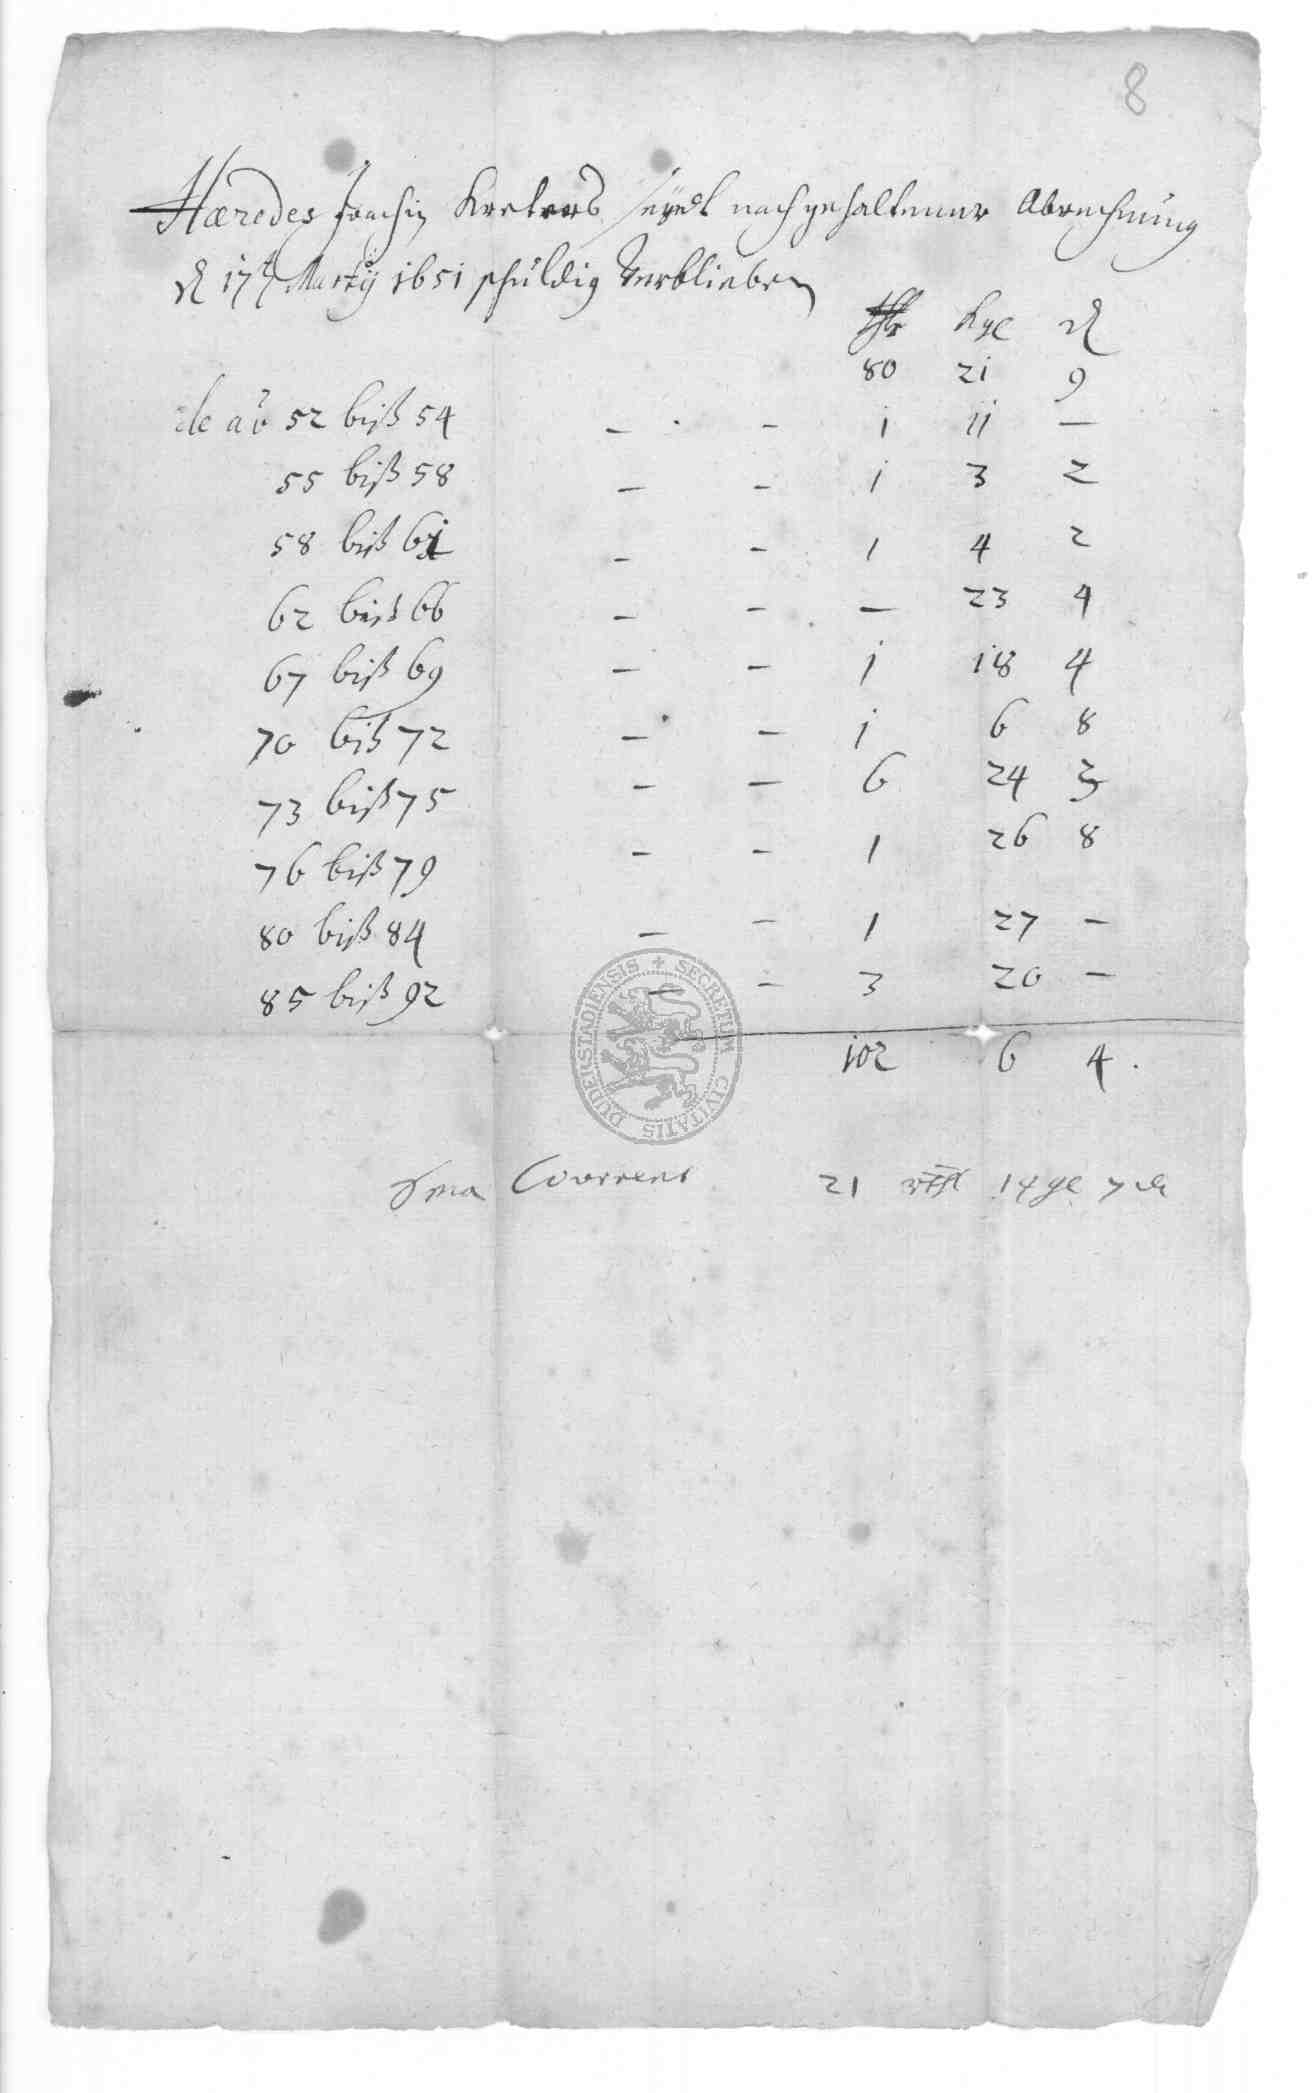 8
Hæredes Joachim Kreters seyndt nach gehaltener Abrechnung
d 17t Martÿ 1651 schuldig verblieben
thlr kgl d
80 21 9
de aō 52 biß 54 – – 1 11 –
55 biß 58 – – 1 3 2
58 biß 61 – – 1 4 2
62 biß 66 – – – 23 4
67 biß 69 – – 1 18 4
70 biß 72 – – 1 6 8
73 biß 75 – – 6 24 3
76 biß 79 – – 1 26 8
80 biß 84 – – 1 27 –
85 biß 92 – – 3 20 –
SECRETUM CIVITATIS DUDERSTADIENSIS
102 6 4.
Sma Courrent 21 14 gl 7 d